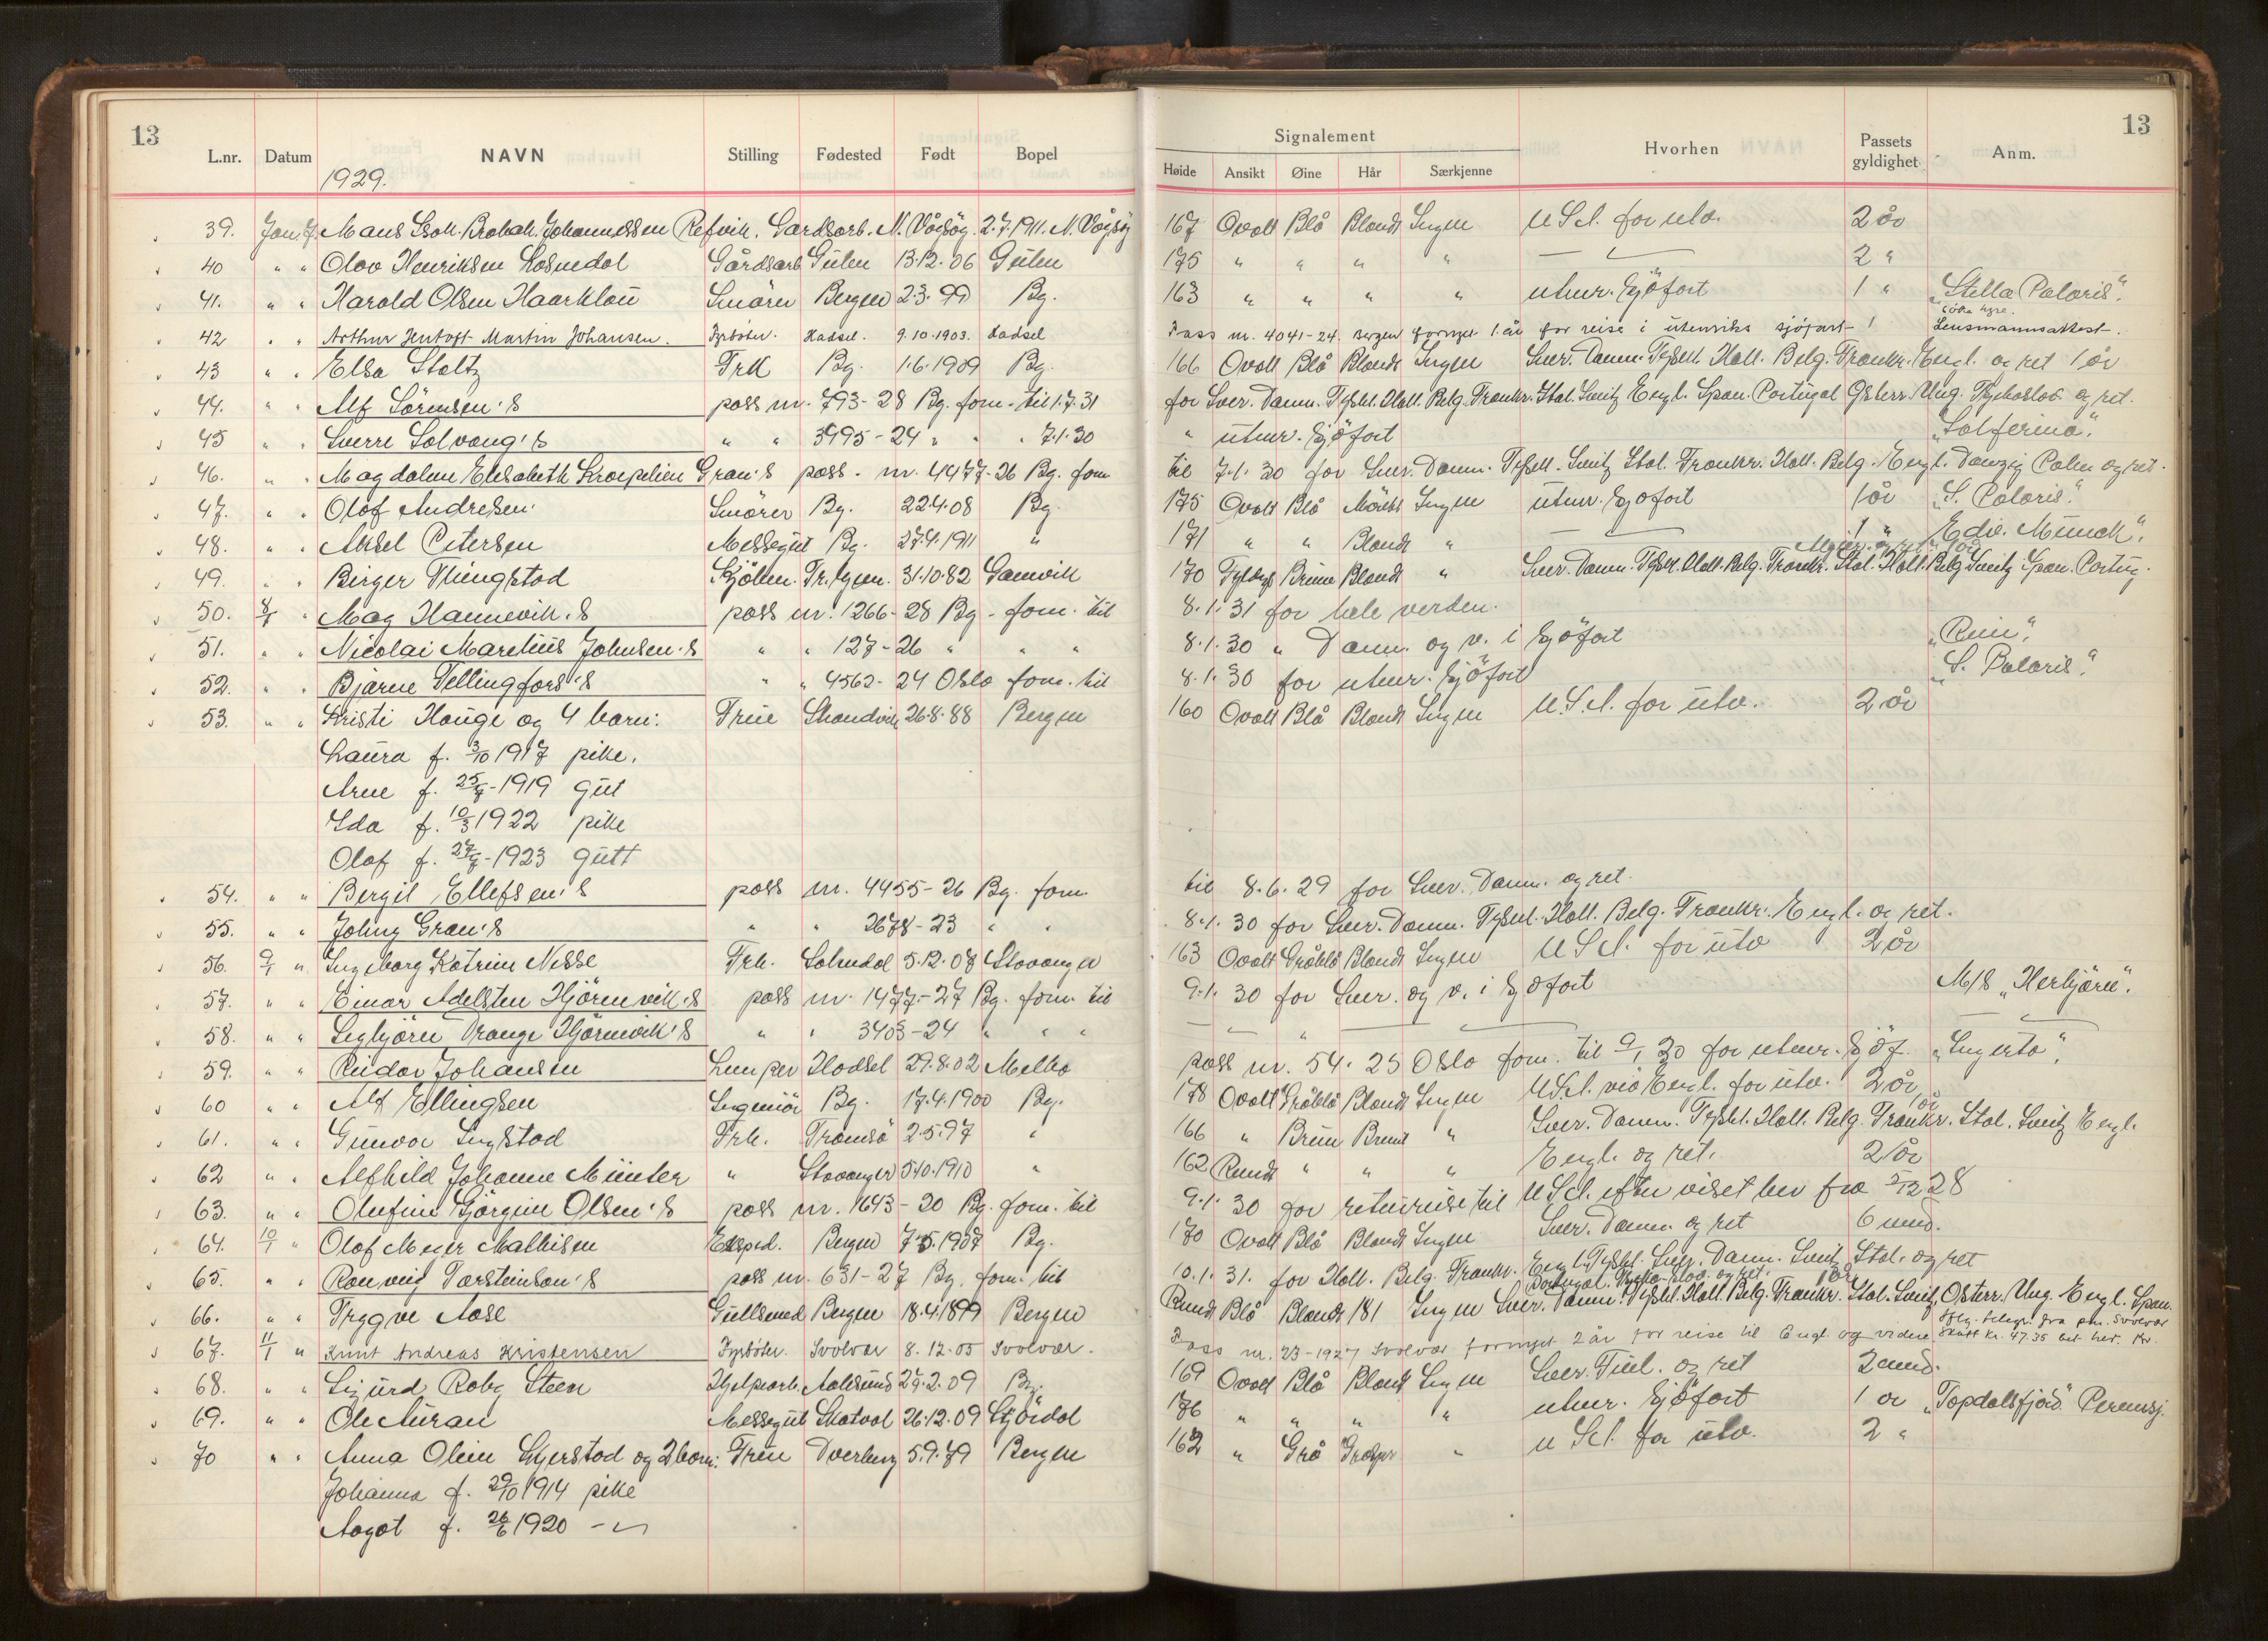 13
L.nr. Datum NAVN Stilling Fødested Født Bopel
1929.
39. Jan. 7. Mans Isak Brobak Johannessen Refvik. Gardsarb. N. Vågsøy. 2.7.1911. N. Vågsøy
40 " " Olav Henriksen Losnedal Gårdsarb Gulen 13.12.06 Gulen
41. " " Harald Olsen Haarklou Smører Bergen 2.3.99 Bg.
42 " " Arthur Hentoft Martin Johansen. Fyrbøter. Hadsel. 9.10.1903. Hadsel
43 " " Elsa Stoltz Frk Bg. 1.6.1909 Bg.
44. " " Alf Sørensen's pass nr. 793-28 Bg. forn. til 1.7.31
45 " " Sverre Solvang's " " 3495-24 " " " 7.1.30
46. " " Magdalene Elisabeth Kroepelien Gran's pass. nr. 4477-26 Bg. forn
47. " " Olaf Andresen. Smører Bg. 22.4.08 Bg.
48. " " Aksel Petersen Messegut Bg. 27.4.1911 "
49. " " Birger Thingstad Skjöllen. 31.10.82 Gamvik
50. 8/1 " Mag Hannevik's pass nr. 1266-28 Bg. forn. til
51. " " Nicolai Marelius Johnsen's " " 127-26 " " "
52. " " Bjarne Tellingfors's " " 4562-24 Oslo forn. til
53. " " Kristi Hauge og 4 barn: Frue Strandvik 26.8.88 Bergen
Laura f. 3/10 1917 pike.
Arne f. 25/7-1919 gut
Ida f. 10/3 1922 pike
Olaf f. 27/7-1923 gutt
54. " " Bergit Ellefsen's pass nr. 4455-26 Bg. forn.
55. " " Johny Gran's " " 2678-23 " "
56. 9/1 " Ingeborg Katrine Nesse Frk. Sokndal 5.12.08 Stavanger
57. " " Einar Adelsten Hjörnevik's pass nr. 1477-27 Bg. forn. til
58. " " Sigbjørn Drange Hjørnevik's " " 3403-24 " " "
59. " " Reidar Johansen Lemper Hadsel 29.8.02 Melbo
60 " " Alf Ellingsen Ingeniør Bg. 17.4.1900 Bg.
61. " " Gunvor Ingstad Frk. Tromsø 2.5.97 "
62 " " Alfhild Johanne Münter " Stavanger 5.10.1910 "
63. " " Olufine Gjørgine Olsen's pass nr. 1643-20 Bg. forn. til
64. 10/1 " Olaf Meyer Mathisen Eksped. Bergen 7.5.1907 Bg.
65. " " Ranveig Torsteinson's pass nr. 631-27 Bg. forn. til
66. " " Trygve Aase Gullsmed Bergen 18.4.1899 Bergen
67. 11/1 " Knut Andreas Kristensen Fyrbøter. Svolvær 8.12.05 Svolvær.
68. " " Sigurd Roby Steen Hjelpearb. Aalesund 27.2.09 Bg.
69. " " Ole Auran Messegut Skatval 26.12.09 Stjørdal
70 " " Anna Oline Skjerstad og 2 barn: Frue Dverberg 5.9.79 Bergen
Johanna f. 29/10 1914 pike
Aagot f. 26/6 1920 - " -
13
Signalement
Høide Ansikt Øine Hår Særkjenne Hvorhen Passets gyldighet Anm.
167 Ovalt Blå Blondt Ingen U.S.A. for utv. 2 år
175 " " " " — " — 2 "
163 " " " " utenr. Sjöfart 1 " "Stella Polaris".
Pass nr. 4041-24. Bergen fornyet 1 år for reise i utenriks sjøfart. Lensmannsattest.
166 Ovalt Blå Blondt Ingen Sver. Danm. Tyskl. Holl. Belg. Frankr. Engl. og ret 1 år
for Sver. Danm. Tyskl. Holl. Belg. Frankr. Ital. Sveitz Engl. Span. Portugal Østerr. Ung. Tyskoslov. og ret.
" utenr. Sjöfart "Solferino".
til 7.1.30 for Sver. Danm. Tyskl. Sveitz Ital. Frankr. Holl. Belg. Engl. Danzig Polen og ret.
175 Ovalt Blå Mörkt Ingen utenr. Sjøfart 1 år "S. Polaris".
171 " " Blondt " — " — 1 " "Edv. Munch".
170 Fyldigt Brune Blondt " Sver. Danm. Tyskl. Holl. Belg. Frankr. Ital. Holl. Belg Sveitz Span. Portug.
8.1.31 for hele verden.
8.1.30 " Danm. og v. i Sjöfart "Rein".
8.1.30 for utenr. Sjöfart "S. Polaris".
160 Ovalt Blå Blondt Ingen U.S.A. for utv. 2 år
til 8.6.29 for Sver. Danm. og ret.
8.1.30 for Sver. Danm. Tyskl. Holl. Belg. Frankr. Engl. og ret.
163 Ovalt Gråblå Blondt Ingen U.S.A. for utv 2 år
9.1.30 for Sver. og v. i Sjøfart M/S "Herbjörn".
— " —
pass nr. 54.25 Oslo forn. til 9/1 30 for utenr. Sjöf. "Ingerto".
178 Ovalt Gråblå Blondt Ingen U.S.A. via Engl. for utv. 2 år
166 " Brun Brunt " Sver. Danm. Tyskl. Holl. Belg. Frankr. Ital. Sveitz Engl. 1 år
162 Rundt " " " Engl. og ret. 2 år
9.1.30 for returreise til U.S.A. efter viset brev fra 5/12 28
170 Ovalt Blå Blondt Ingen Sver. Danm. og ret 6 mnd.
10.1.31. for Holl. Belg. Frankr. Engl. Tyskl. Sver. Danm. Sveitz Ital. og ret
Portugal. Tsjekko-slov. og ret. 1 år
Rundt Blå Blondt 181 Ingen Sver. Danm. Tyskl. Holl. Belg. Frankr. Ital. Sveitz, Østerr. Ung. Engl. Span.
Pass nr. 23-1927 Svolvær fornyet 2 år for reise til Engl. og videre
169 Ovalt Blå Blondt Ingen Sver. Finl. og ret 2 mnd.
176 " " " " utenr. Sjöfart 1 år "Topdalsfjord".
162 " Grå " U.S.A. for utv. 2 "